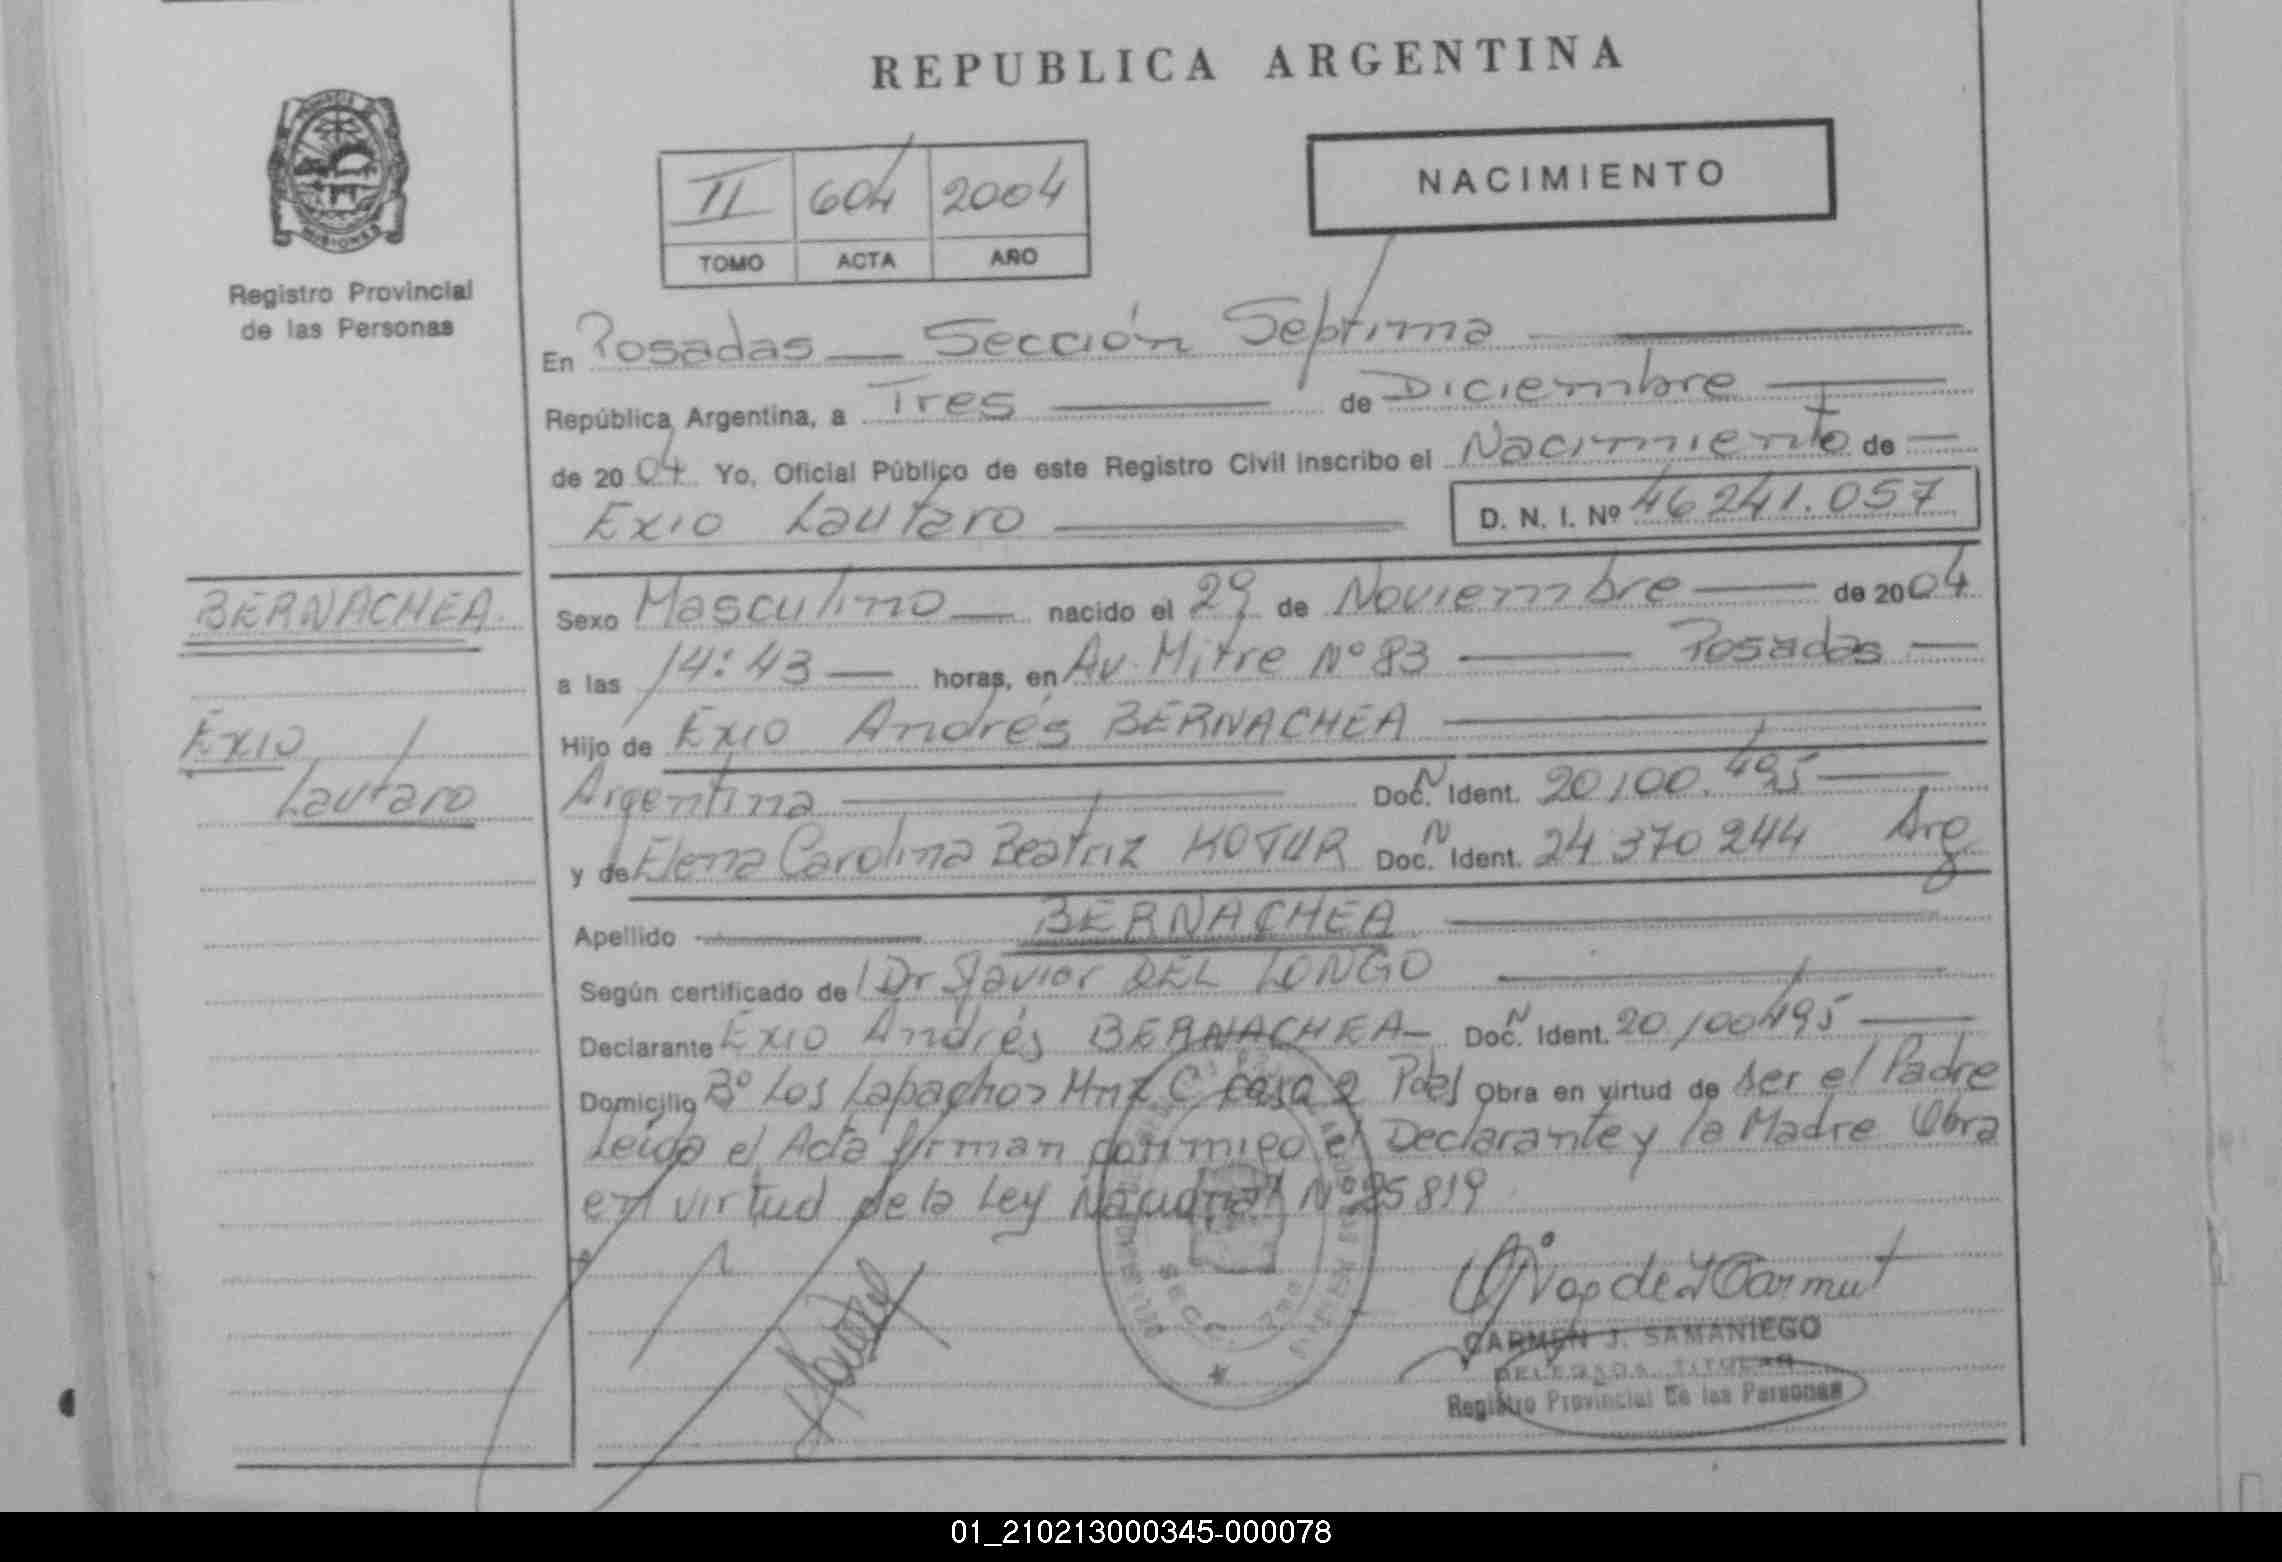 REPUBLICA ARGENTINA
MISIONES
Registro Provincial
de las Personas
II 604 2004
TOMO ACTA AÑO
NACIMIENTO
En Posadas — Sección Séptima
República Argentina, a Tres de Diciembre
de 2004 Yo, Oficial Público de este Registro Civil Inscribo el Nacimiento de
Exio Lautaro D. N. I. Nº 46241.057
BERNACHEA
Exio
Lautaro
Sexo Masculino nacido el 29 de Noviembre de 2004
a las 14:43 horas, en Av. Mitre Nº 83 Posadas
Hijo de Exio Andrés BERNACHEA
Argentina Doc. N Ident. 20100.495
y de Elena Carolina Beatriz KOTUR Doc. N Ident. 24 370 244 Arg
Apellido BERNACHEA
Según certificado de Dr Javier DEL LONGO
Declarante Exio Andrés BERNACHEA Doc. N Ident. 20.100495
Domicilio Bº Los Lapachos Mnz C casa 2 Pdas Obra en virtud de ser el Padre
Leída el Acta firman conmigo el Declarante y la Madre Obra
en virtud de la Ley Nacional Nº 25819
CARMEN J. SAMANIEGO
DELEGADA TITULAR
Registro Provincial de las Personas
01_210213000345-000078